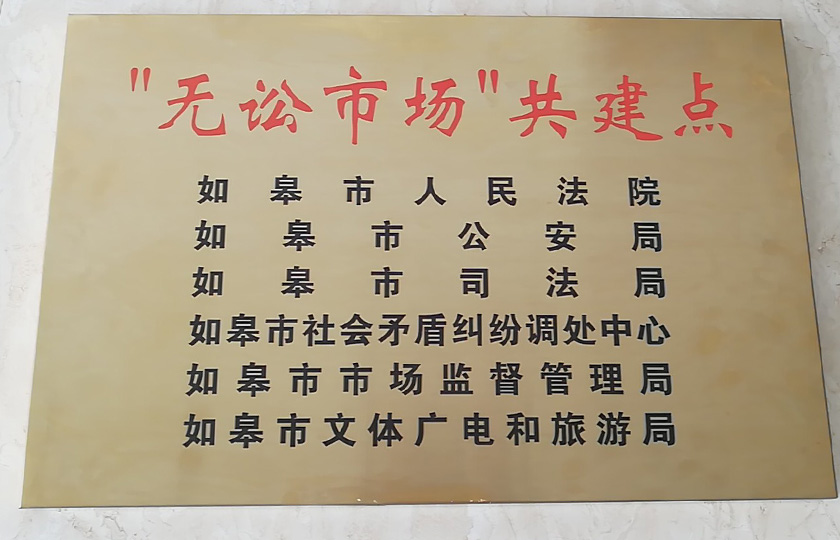 "无讼市场"共建点
如皋市人民法院
如皋市公安局
如皋市司法局
如皋市社会矛盾纠纷调处中心
如皋市市场监督管理局
如皋市文体广电和旅游局